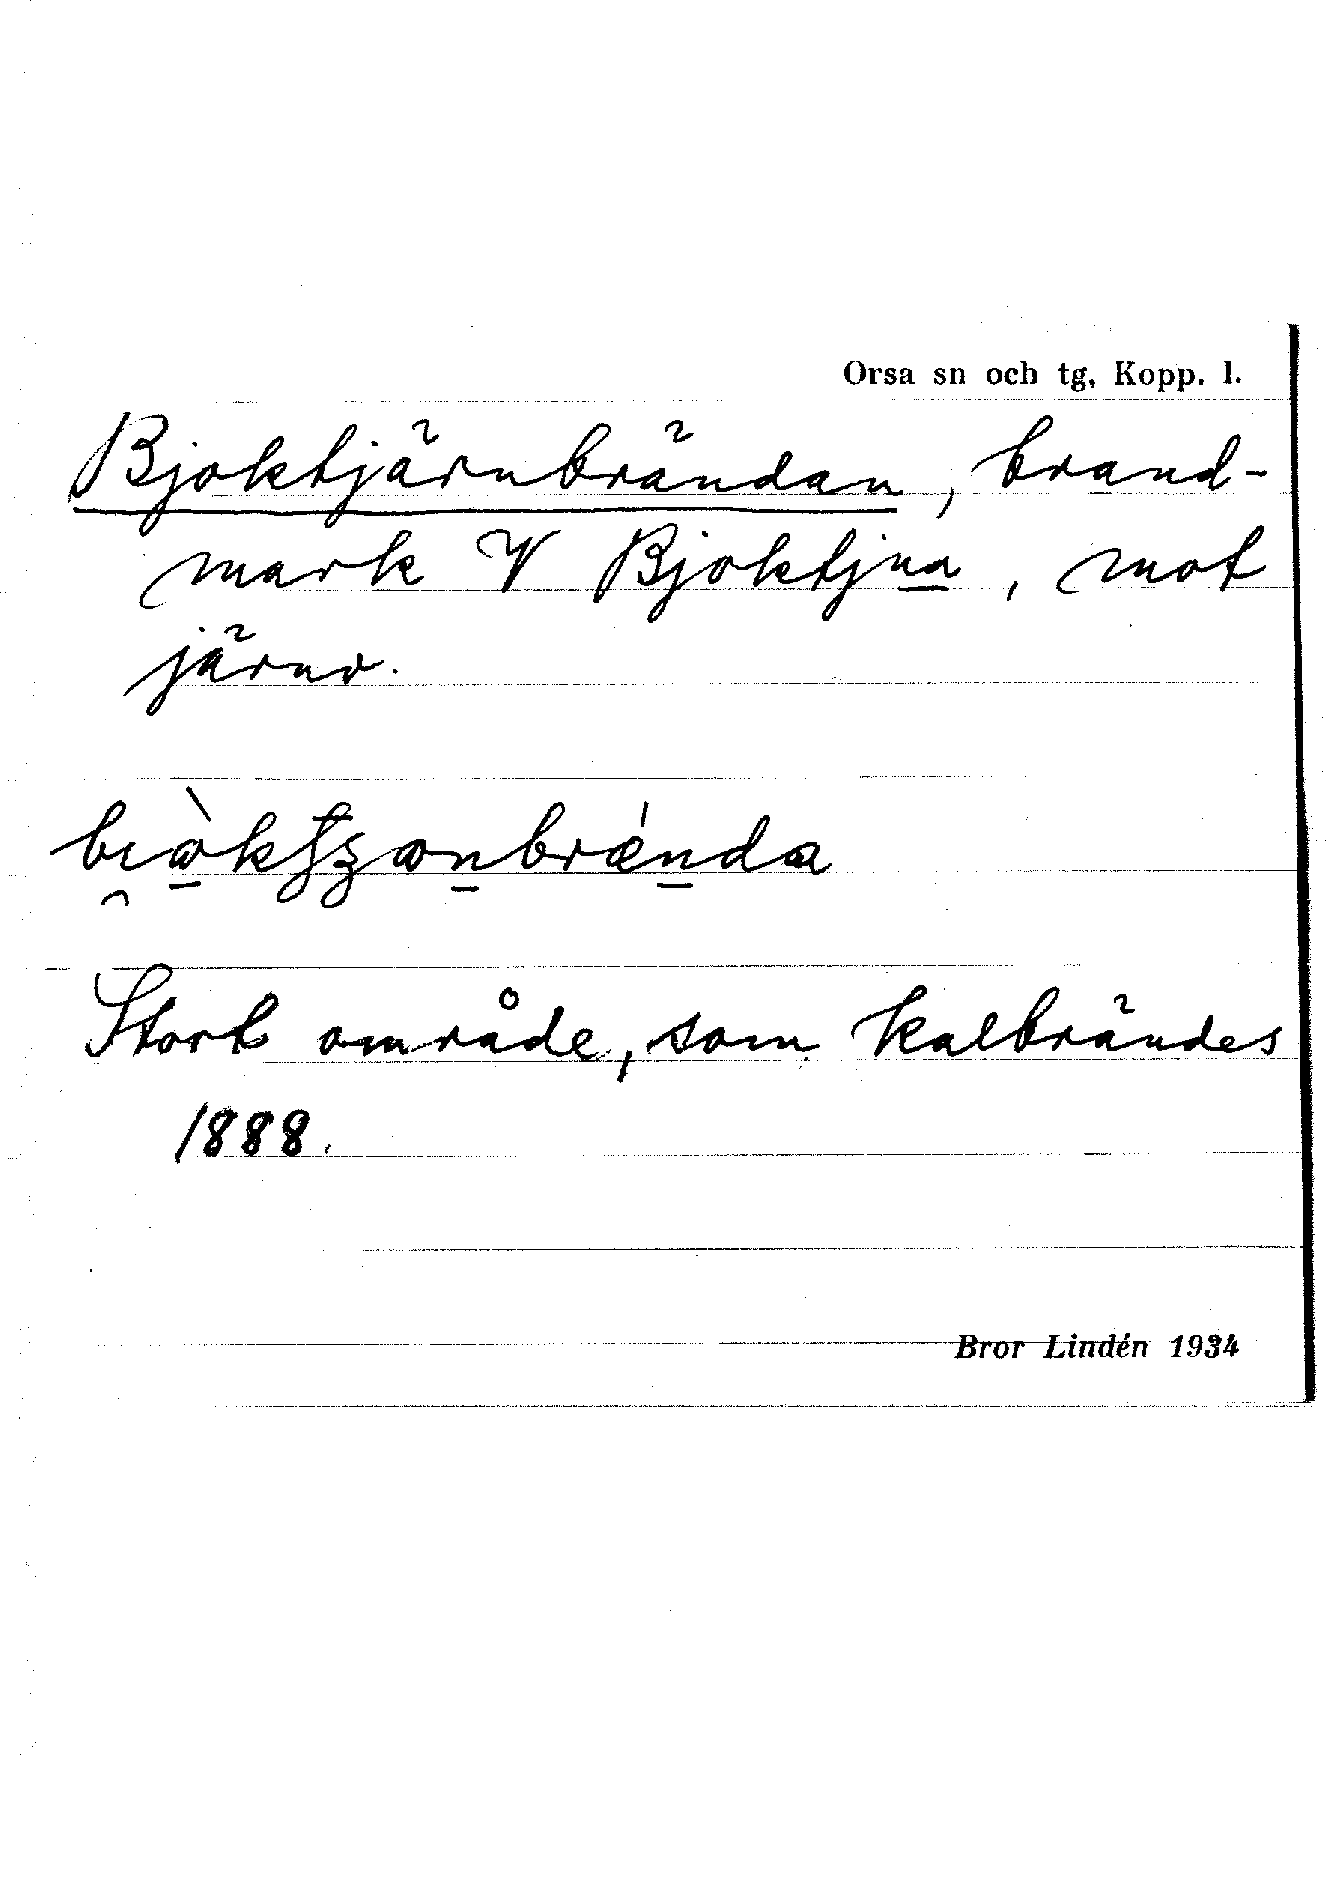 Orsa sn och tg, Kopp. l.
Bjoktjärnbrändan, brand-
mark V Bjoktjna, mot
järnv.
Stort område, som kalbrändes
1888.
Bror Lindén 1934